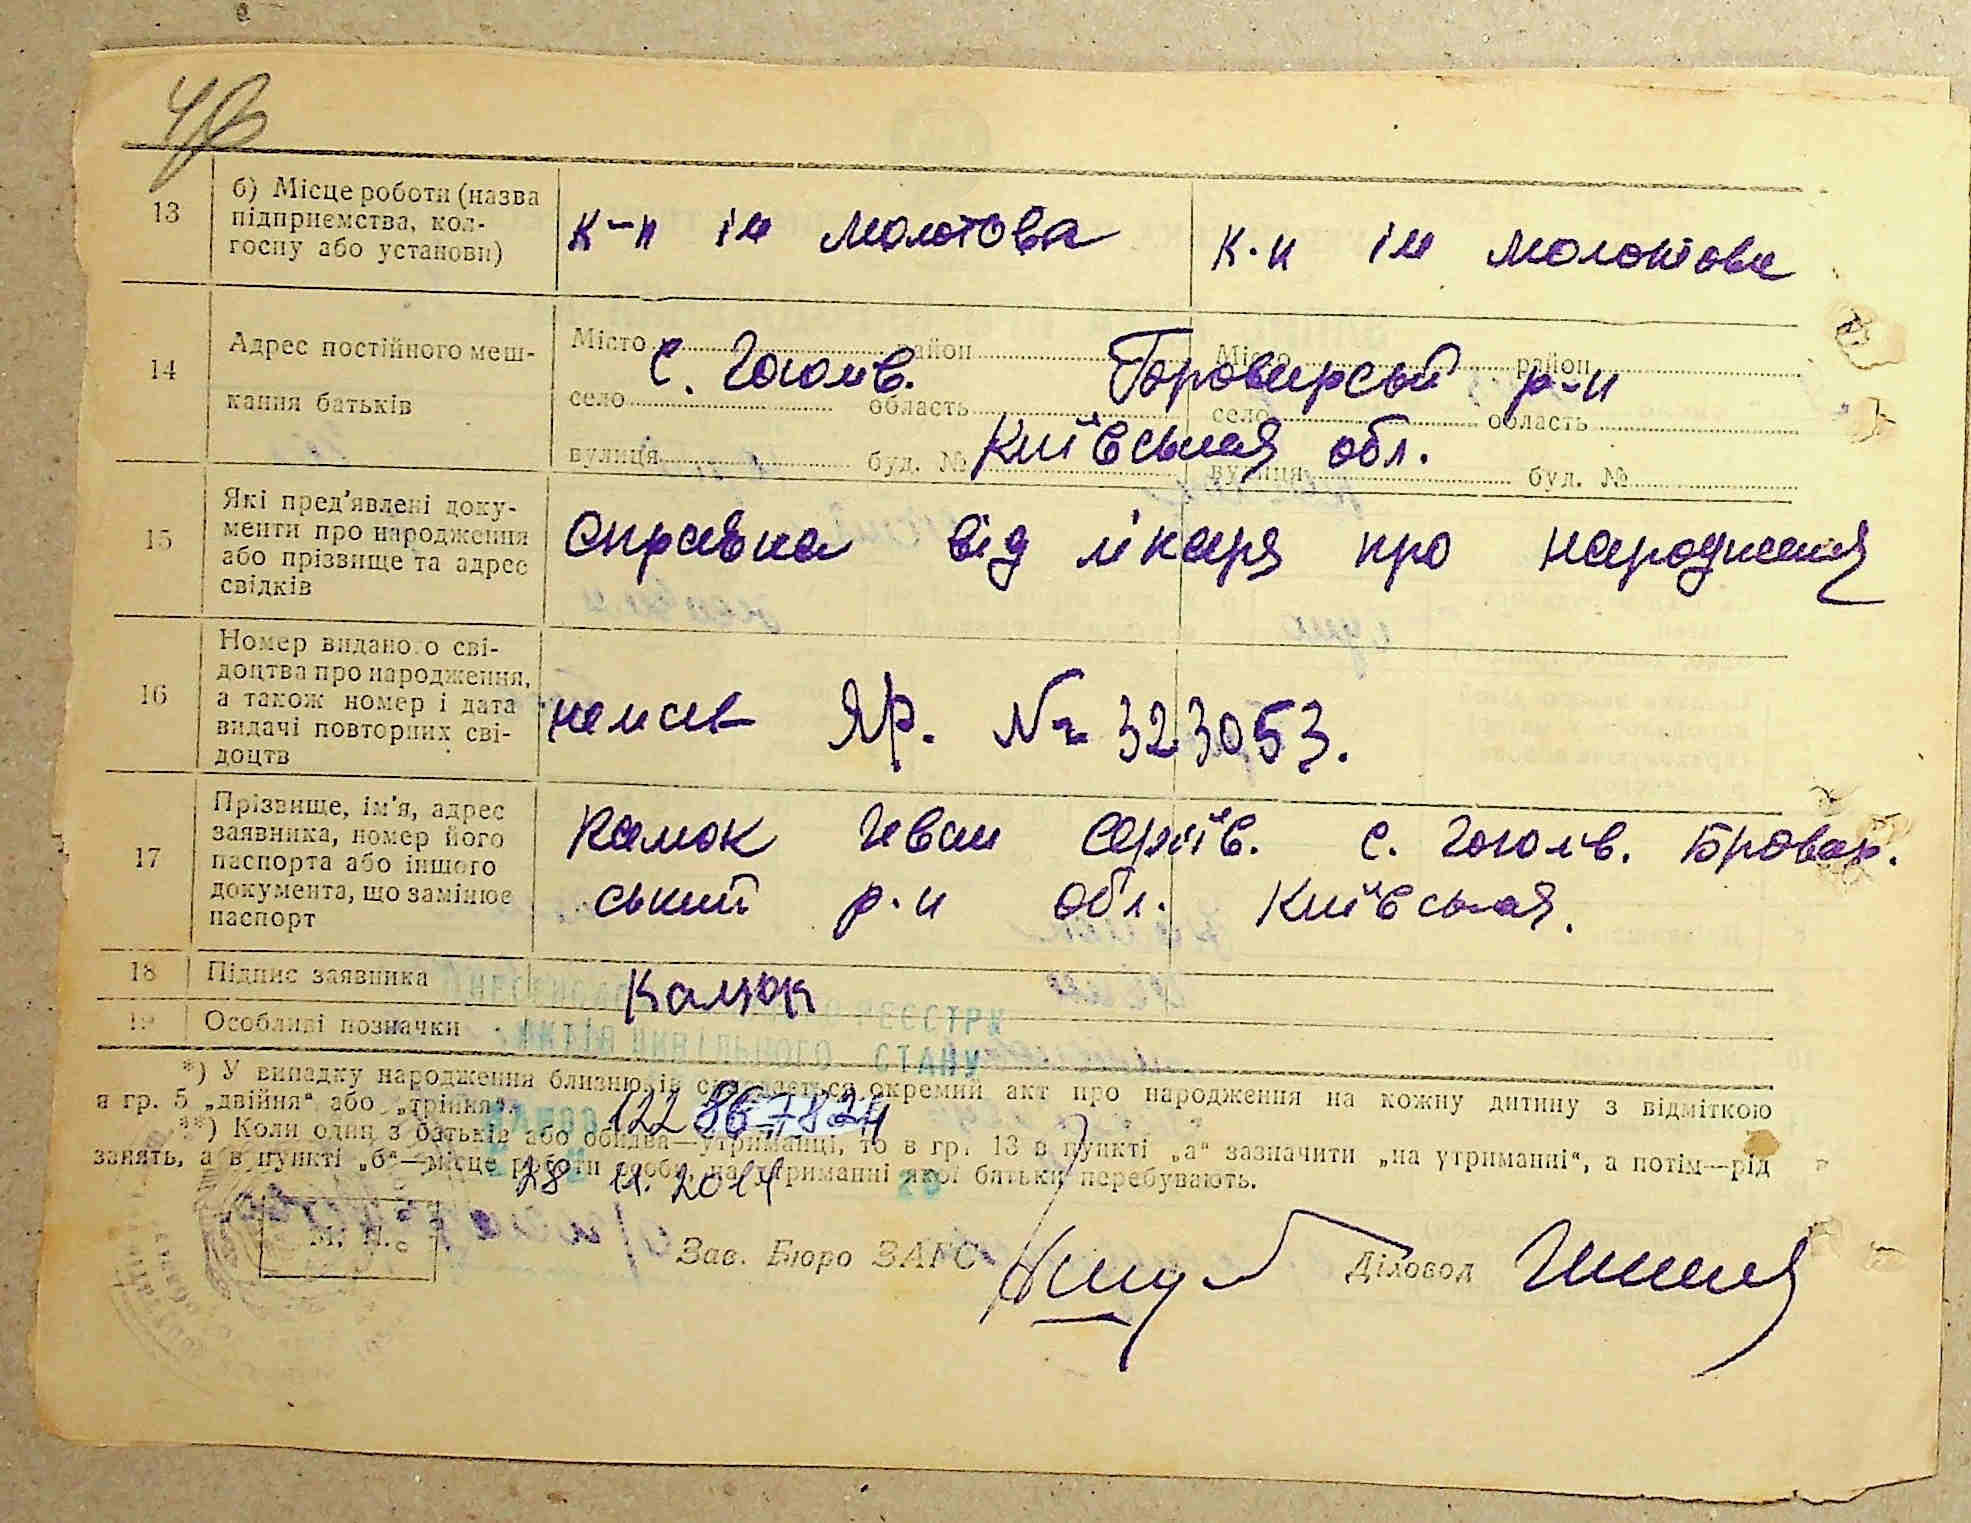 13
б) Місце роботи (назва
підприємства, кол-
госпу або установи)
к-п ім Молотова
к-п ім Молотова
14
Адрес постійного меш-
кання батьків
Місто район Місто район
с. Гоголів. Броварський р-н
село область село область
Київська обл.
вулиця буд. № вулиця буд. №
15
Які пред'явлені доку-
менти про народження
або прізвище та адрес
свідків
справка від лікаря про народження
16
Номер виданого сві-
доцтва про народження,
а також номер і дата
видачі повторних сві-
доцтв
ЯР. № 323053.
17
Прізвище, ім'я, адрес
заявника, номер його
паспорта або іншого
документа, що замінює
паспорт
Камок Іван Сергіїв. с. Гоголів. Бровар.
ський р-н обл. Київська.
18
Підпис заявника
Камок
19
Особливі позначки
РЕЄСТРУ
АКТІВ ЦИВІЛЬНОГО СТАНУ
*) У випадку народження близнюків складається окремий акт про народження на кожну дитину з відміткою
в гр. 5 „двійня“ або „трійня“.
122 86 7824
**) Коли один з батьків або обидва—утриманці, то в гр. 13 в пункті „а“ зазначити „на утриманні“, а потім—рід
занять, а в пункті „б“—місце роботи особи, на утриманні якої батьки перебувають.
28 11. 2014
М. П.
Зав. Бюро ЗАГС
Діловод